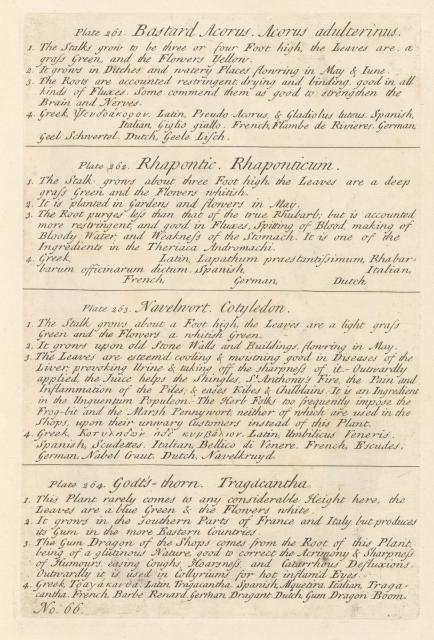 Plate 261. Bastard Acorus. Acorus adulterinus.
1. The Stalks grow to be three or four Foot high, the Leaves are a
grass Green, and the Flowers Yellow.
2. It grows in Ditches and watery Places flowring in May & Iune.
3. The Roots are accounted restringent, drying and binding, good in all
kinds of Fluxes. Some commend them as good to strengthen the
Brain and Nerves.
4. Greek, Latin, Pseudo Acorus & Gladiolus luteus. Spanish,
Italian, Giglio giallo. French, Flambe de Rivieres. German,
Geel Schwertel. Dutch, Geele Lisch.
Plate 262. Rhapontic. Rhaponticum.
1. The Stalk grows about three Foot high, the Leaves are a deep
grass Green, and the Flowers whitish.
2. It is planted in Gardens and flowers in May.
3. The Root purges less than that of the true Rhubarb; but is accounted
more restringent, and good in Fluxes, Spitting of Blood, making of
Bloody Water and Weakness of the Stomach. It is one of the
Ingredients in the Theriaca Andromachi.
4. Greek, Latin, Lapathum praestantissimum, Rhabar-
barum officinarum dictum. Spanish, Italian,
French, German, Dutch,
Plate 263. Navelwort. Cotyledon.
1. The Stalk grows about a Foot high, the Leaves are a light grass
Green and the Flowers a whitish Green.
2. It grows upon old Stone Walls and Buildings, flowring in May.
3. The Leaves are esteem'd cooling & moistning good in Diseases of the
Liver, provoking Urine & taking off the sharpness of it. Outwardly
applied, the Juice helps the Shingles, St. Anthony's Fire, the Pain and
Inflammation of the Piles, & eases Kibes & Chilblains. It is an Ingredient
in the Unguentum Populeon. The Herb Folks too frequently impose the
Frog-bit and the Marsh Pennywort, neither of which are used in the
Shops, upon their unwary Customers instead of this Plant.
4. Greek, Latin, Umbilicus Veneris.
Spanish, Scudettes. Italian, Bellico di Venere. French, Escudes.
German, Nabel kraut. Dutch, Navelkruyd.
Plate 264. Goat's-thorn. Tragacantha.
1. This Plant rarely comes to any considerable Height here, the
Leaves are a blue Green & the Flowers white.
2. It grows in the Southern Parts of France and Italy, but produces
its Gum in the more Eastern Countries.
3. The Gum Dragon of the Shops comes from the Root of this Plant,
being of a glutinous Nature, good to correct the Acrimony & Sharpness
of Humours, easing Coughs, Hoarsness, and Catarrhous Defluxions.
Outwardly it is used in Collyriums for hot inflam'd Eyes.
4. Greek, Τραγακανθα. Latin, Tragacantha. Spanish, Alquetira. Italian, Traga-
cantha. French, Barbe Renard. German, Dragant. Dutch, Gum Dragon Boom.
No. 66